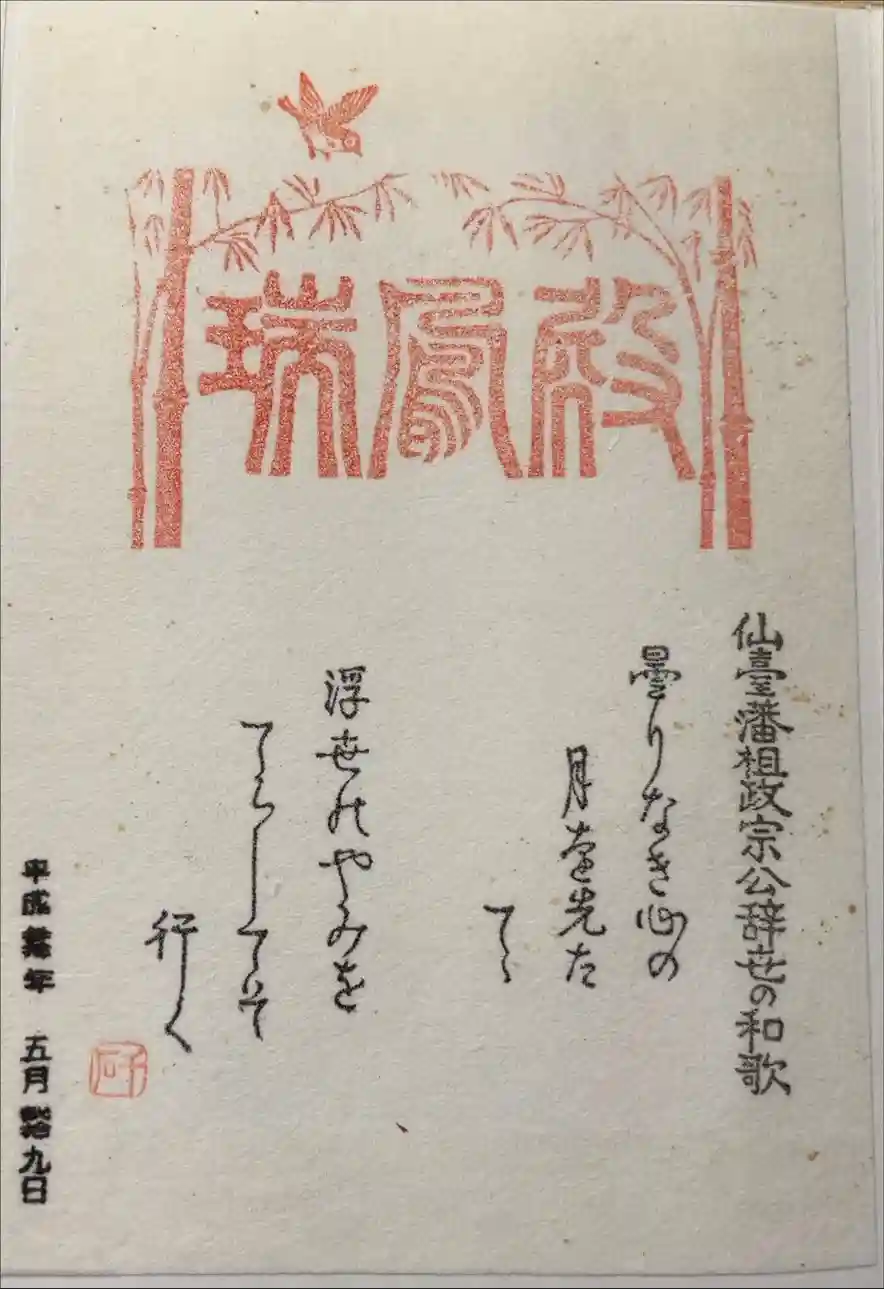 瑞鳳殿
仙臺藩祖政宗公辞世の和歌
曇りなき心の
月を先た
てゝ
浮世のやみを
てらしてそ
行く
平成 年 五月 九日